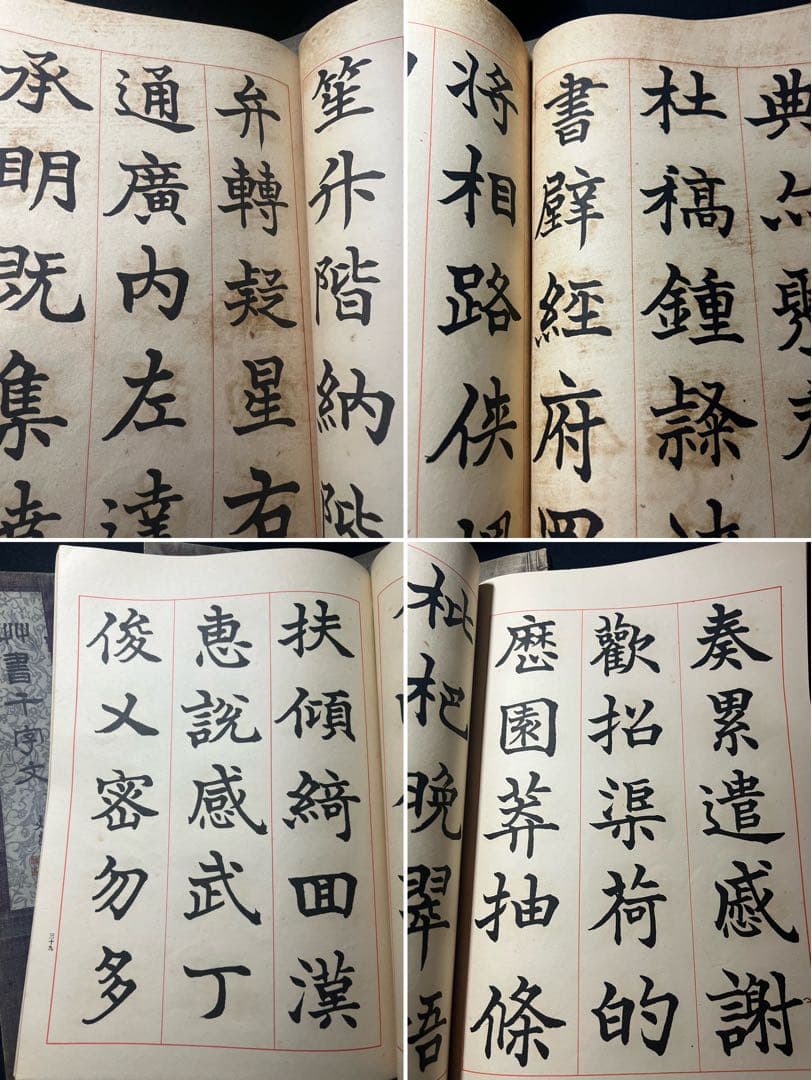 笙升階納陛
弁轉疑星右
通廣内左達
承明既集
典亦聚
杜稿鍾隸
書壁經府羅
将相路侠槐
扶傾綺囬漢
恵說感武丁
俊乂密勿多
三十九
艸書千字文
奏累遣慼謝
歡招渠荷的
歴園莽抽條
枇杷晚翠梧